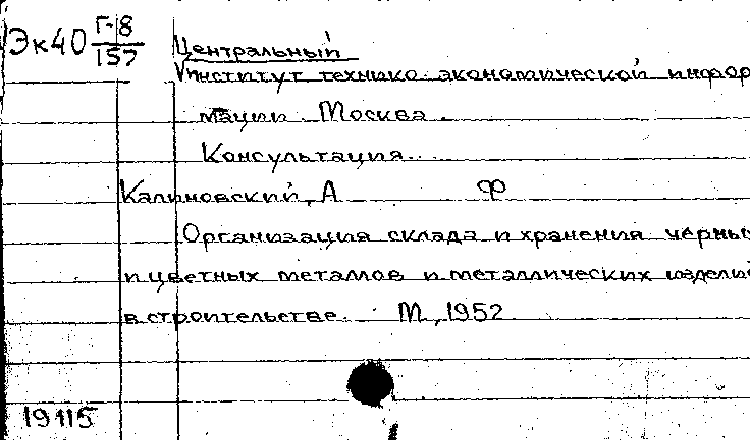 Эк40 Г-8
157
Центральный
Институт технико-экономической инфор
мации Москва.
Консультация.
Калиновский, А Ф
Организация склада и хранения черны
и цветных металлов и металлических изделий
в строительстве. М, 1952
19115